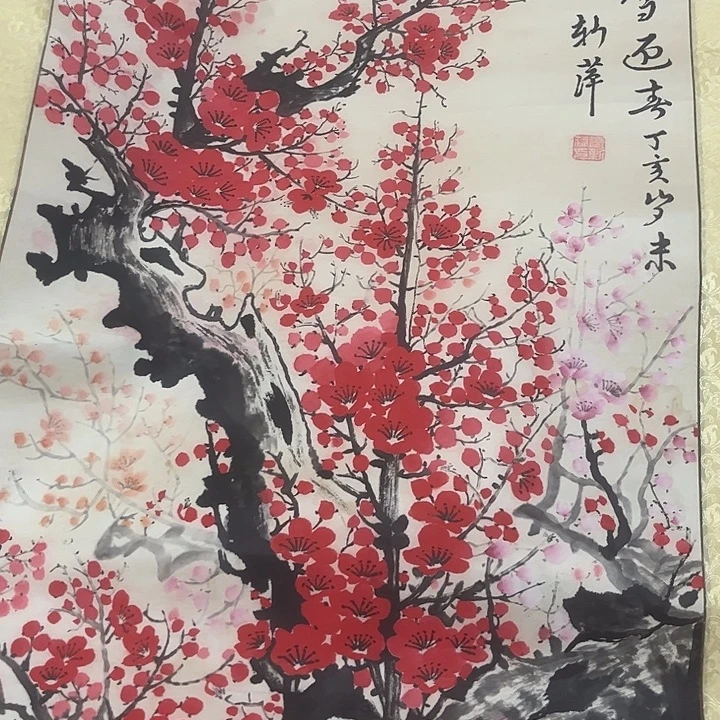 雪迎春丁亥岁末
新萍